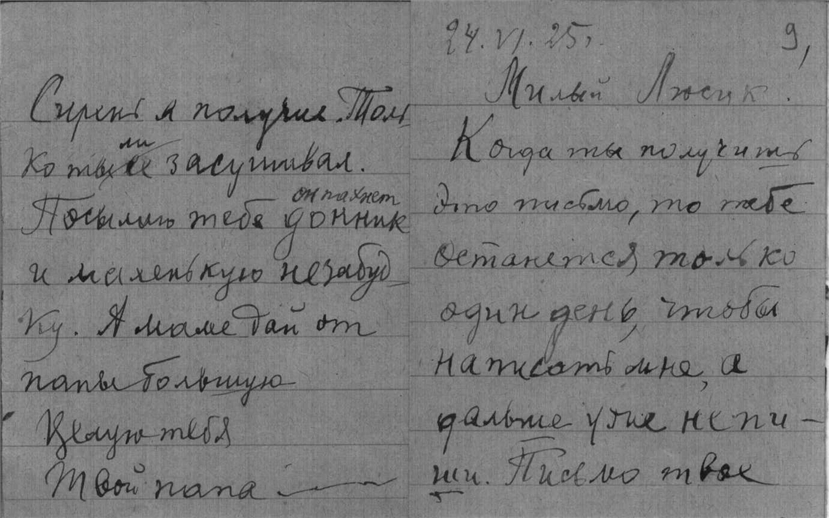 Сирень я получил. Толь
ко ты ли засушивал.
он пахнет
Посылаю тебе донник
и маленькую незабуд-
ку. А маме дай от
папы большую
Целую тебя
Твой папа
24.VI.25г. 9,
Милый Люсик!
Когда ты получишь
это письмо, то тебе
останется только
один день, чтобы
написать мне, а
дальше уже не пи-
ши. Письмо твое